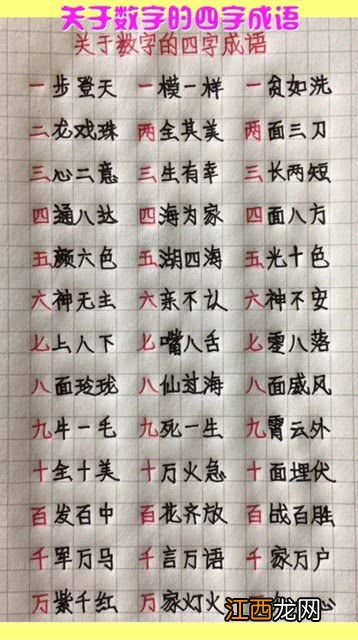 关于数字的四字成语
关于数字的四字成语
一步登天 一模一样 一贫如洗
二龙戏珠 两全其美 两面三刀
三心二意 三生有幸 三长两短
四通八达 四海为家 四面八方
五颜六色 五湖四海 五光十色
六神无主 六亲不认 六神不安
七上八下 七嘴八舌 七零八落
八面玲珑 八仙过海 八面威风
九牛一毛 九死一生 九霄云外
十全十美 十万火急 十面埋伏
百发百中 百花齐放 百战百胜
千军万马 千言万语 千家万户
万紫千红 万家灯火 心
江西龙网